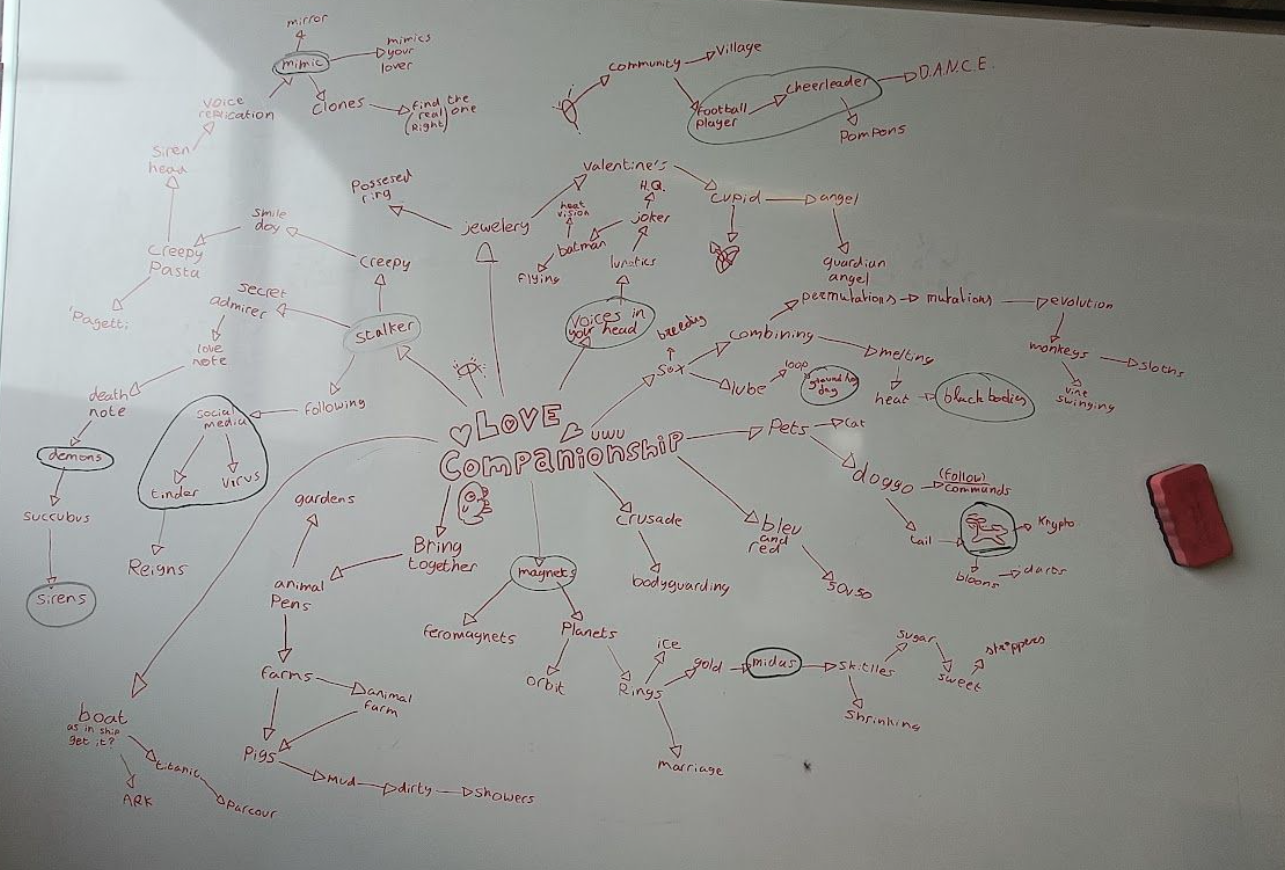 mirror
mimic
mimics
your
lover
clones
find the
real one
(Right)
voice
replication
siren
head
creepy
Pasta
'Pagetti
smile
day
creepy
stalker
secret
admirer
love
note
death
note
demons
succubus
sirens
following
social
media
tinder
virus
Reigns
Possesed
ring
jewelery
valentine's
cupid
angel
guardian
angel
community
Village
football
player
cheerleader
D.A.N.C.E.
Pompons
H.Q.
joker
heat
vision
batman
flying
lunatics
Voices in
your head
LOVE
UWU
Companionship
breeding
lube
loop
day
combining
permutations
mutations
evolution
monkeys
sloths
vine
swinging
melting
heat
black bodies
Pets
cat
doggo
(follow)
commands
tail
Krypto
bloons
darts
bleu
and
red
crusade
bodyguarding
magnets
feromagnets
Planets
orbit
Rings
ice
gold
midas
skitlles
sugar
sweet
shrinking
marriage
Bring
together
animal
Pens
gardens
farms
animal
farm
Pigs
Mud
dirty
showers
boat
as in ship
get it?
ARK
titanic
Parcour